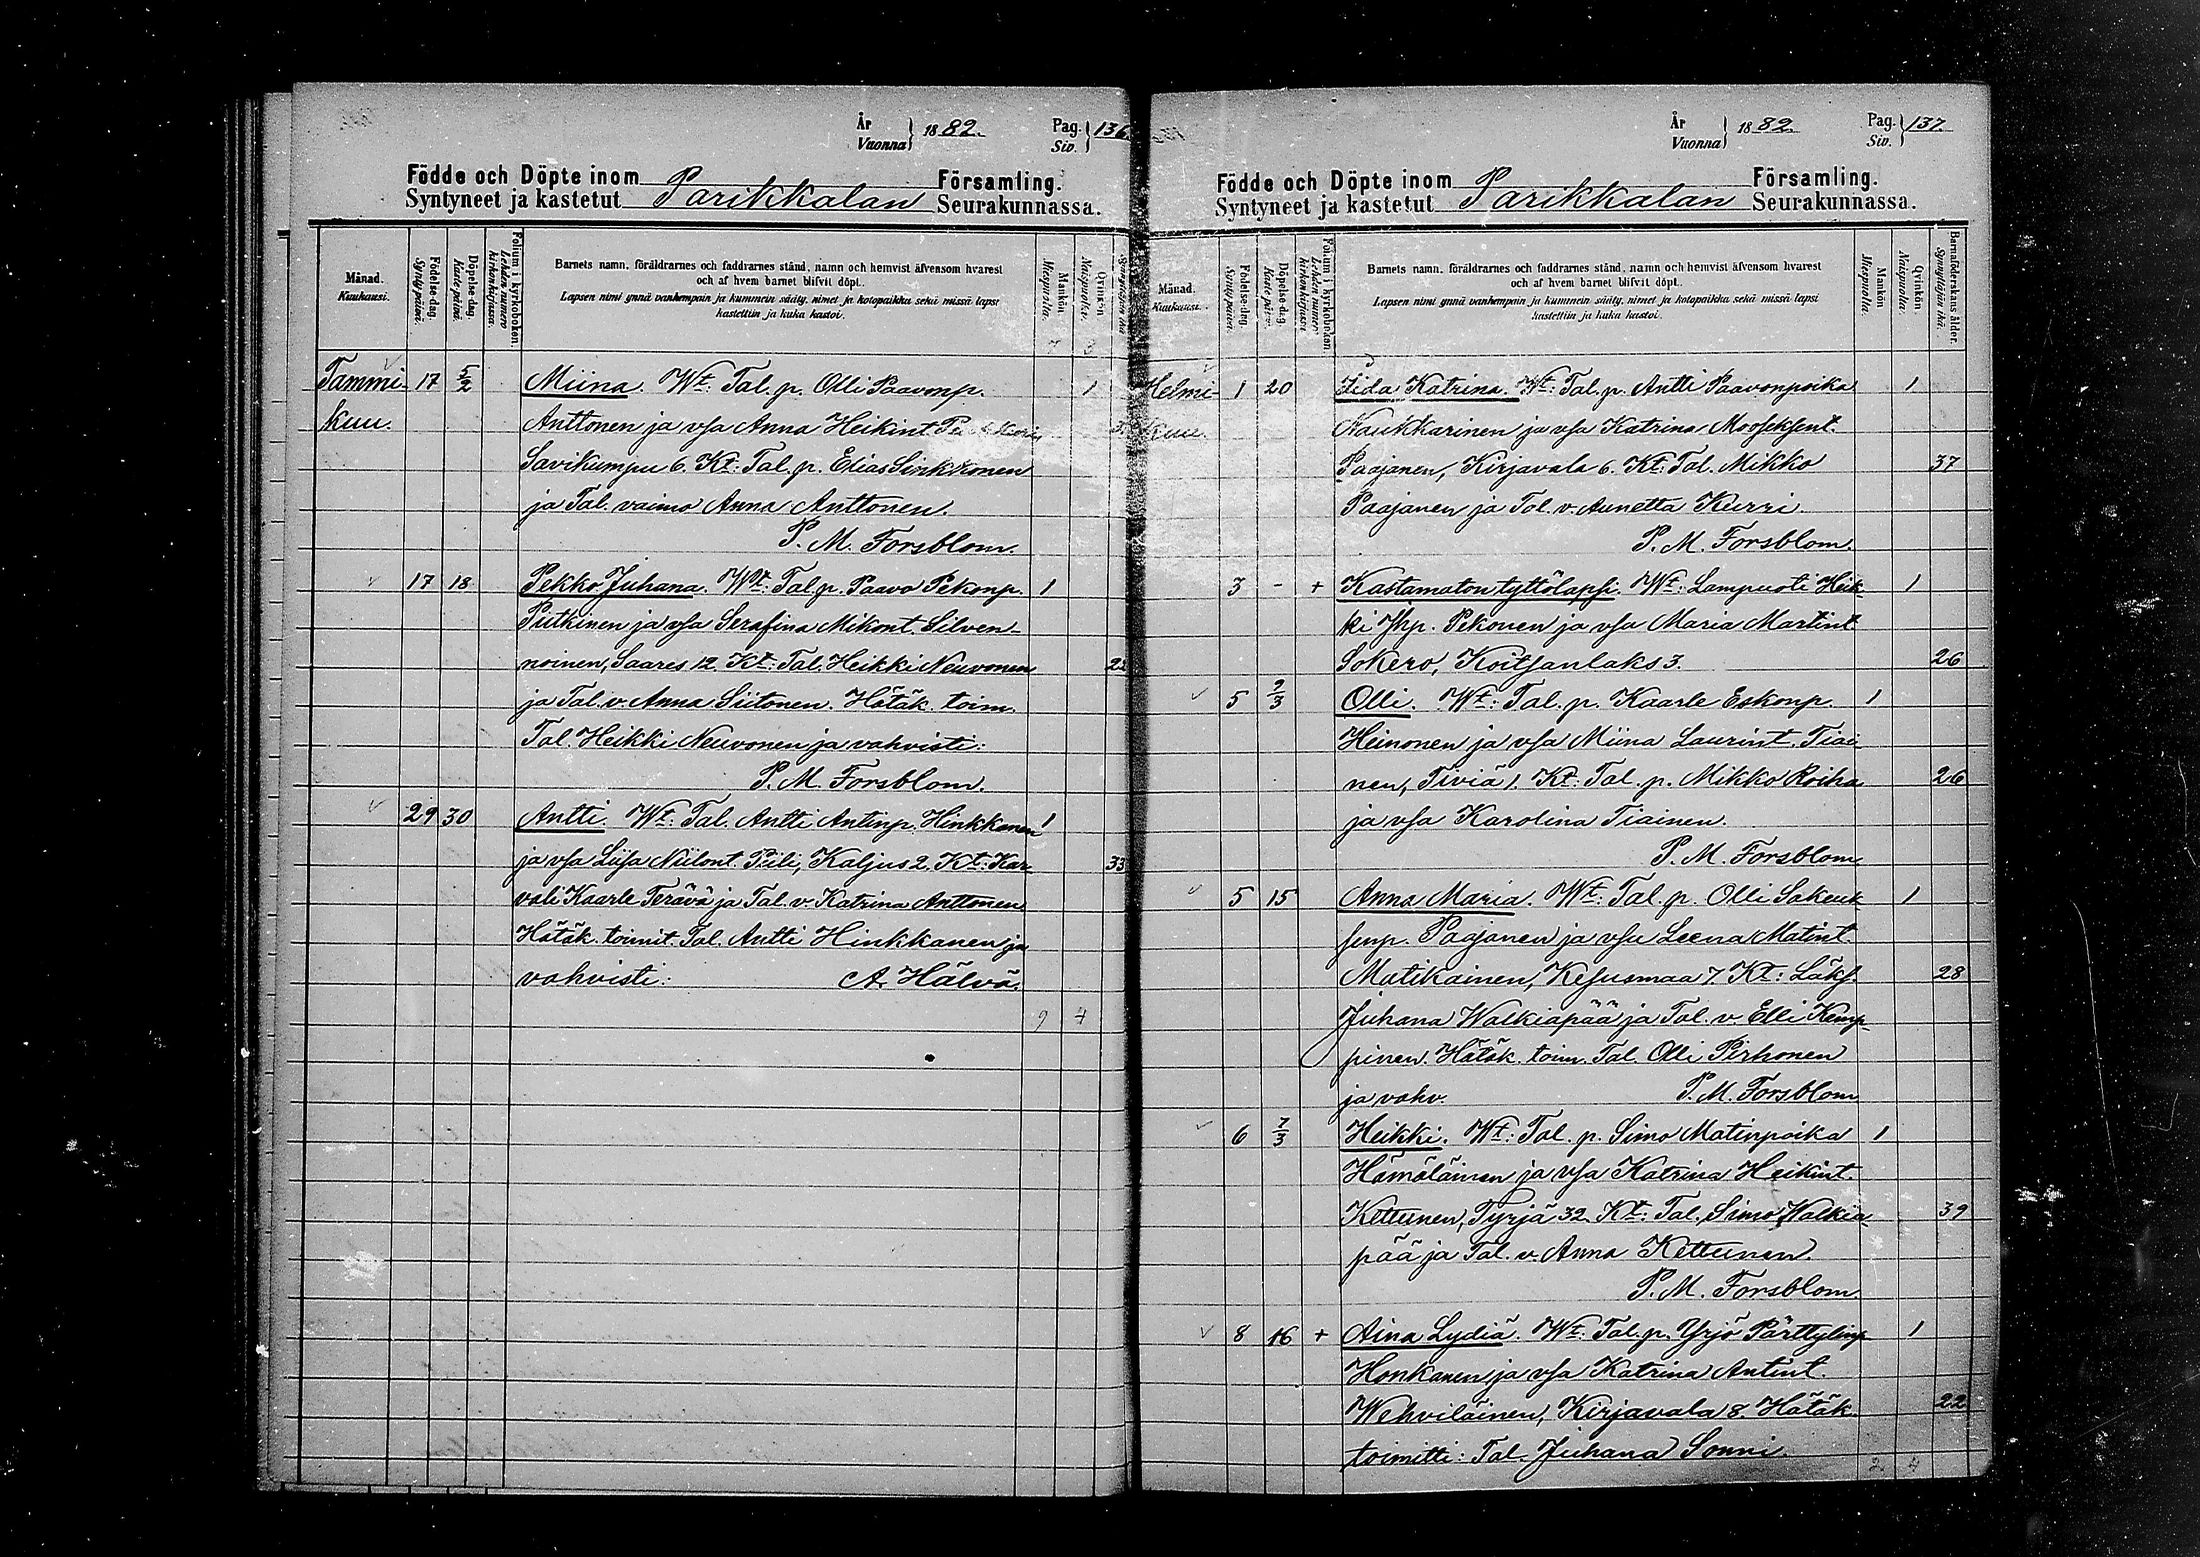 År
Vuonna } 1882.
Pag.
Siv. } 136
Födde och Döpte inom Parikkalan Församling.
Syntyneet ja kastetut Seurakunnassa.
Månad.
Kuukausi.
Födelse-dag.
Synty-päivä.
Döpelse-dag.
Kaste-päivä.
Folium i kyrkoboken.
Lehden numero kirkonkirjassa.
Barnets namn, föräldrarnes och faddrarnes stånd, namn och hemvist äfvensom hvarest
och af hvem barnet blifvit döpt.
Lapsen nimi ynnä vanhempain ja kummein sääty, nimet ja kotopaikka sekä missä lapsi
kastettiin ja kuka kastoi.
Mankön
Miespuolta.
Qvinkön
Naispuolta.
7 3
Tammi- 17 5/2 Miina. Wt: Tal. p. Olli Paavonp. 1
kuu. Anttonen ja vsa Anna Heikint.
Savikumpu 6. Kt: Tal. p. Elias Sinkkonen
ja Tal. vaimo Anna Anttonen.
P. M. Forsblom.
17 18 Pekko Juhana. Wt: Tal. p. Paavo Pekonp. 1
Pitkinen ja vsa Serafina Mikont. Silven-
noinen, Saares 12. Kt: Tal. Heikki Neuvonen 22
ja Tal. v. Anna Siitonen. Hätäk. toim.
Tal. Heikki Neuvonen ja vahvisti:
P. M. Forsblom.
29 30 Antti. Wt: Tal. Antti Antinp. Hinkkanen 1
ja vsa Liisa Niilont. Piili, Kaljus 2. Kt: Kar- 33
vali Kaarle Terävä ja Tal. v. Katrina Anttonen
Hätäk. toimit. Tal. Antti Hinkkanen ja
vahvisti: A. Hälvä.
9 4
År
Vuonna } 1882.
Pag.
Siv. } 137.
Födde och Döpte inom Parikkalan Församling.
Syntyneet ja kastetut Seurakunnassa.
Månad.
Kuukausi.
Födelse-dag.
Synty-päivä.
Döpelse-dag.
Kaste-päivä.
Folium i kyrkoboken.
Lehden numero kirkonkirjassa.
Barnets namn, föräldrarnes och faddrarnes stånd, namn och hemvist äfvensom hvarest
och af hvem barnet blifvit döpt.
Lapsen nimi ynnä vanhempain ja kummein sääty, nimet ja kotopaikka sekä missä lapsi
kastettiin ja kuka kastoi.
Mankön
Miespuolta.
Qvinkön
Naispuolta.
Barnaföderskans ålder.
Synnyttäjän ikä.
Helmi- 1 20 Iida Katrina. Wt: Tal. p. Antti Paavonpoika 1
kuu. Naukkarinen ja vsa Katrina Mooseksent.
Paajanen, Kirjavala 6. Kt: Tal. Mikko 37
Paajanen ja Tal. v. Annetta Kurri
P. M. Forsblom.
3 - + Kastamaton tyttölapsi. Wt: Lampuoti Heik- 1
ki Jhp. Pekonen ja vsa Maria Martint.
Sokero, Koitsanlaks 3. 26
5 2/3 Olli. Wt: Tal. p. Kaarle Eskonp. 1
Heinonen ja vsa Miina Laurint. Tiai-
nen, Tiviä 1. Kt: Tal. p. Mikko Roiha 26
ja vsa Karolina Tiainen.
P. M. Forsblom
5 15 Anna Maria. Wt: Tal. p. Olli Sakeuk- 1
senp. Paajanen ja vsa Leena Matint.
Matikainen, Kesusmaa 7. Kt: Läks. 28
Juhana Walkiapää ja Tal. v. Elli Kemp-
pinen. Hätäk. toim. Tal. Olli Pirhonen
ja vahv. P. M. Forsblom
6 7/3 Heikki. Wt: Tal. p. Simo Matinpoika 1
Hämäläinen ja vsa Katrina Heikint.
Kettunen, Tyrjä 32. Kt: Tal. Simo Walkia- 39
pää ja Tal. v. Anna Kettunen.
P. M. Forsblom.
8 16 + Aina Lydiä. Wt: Tal. p. Yrjö Pärttylinp. 1
Honkanen ja vsa Katrina Antint.
Wehviläinen, Kirjavala 8. Hätäk. 22
toimitti: Tal. Juhana Sonni.
2. 4